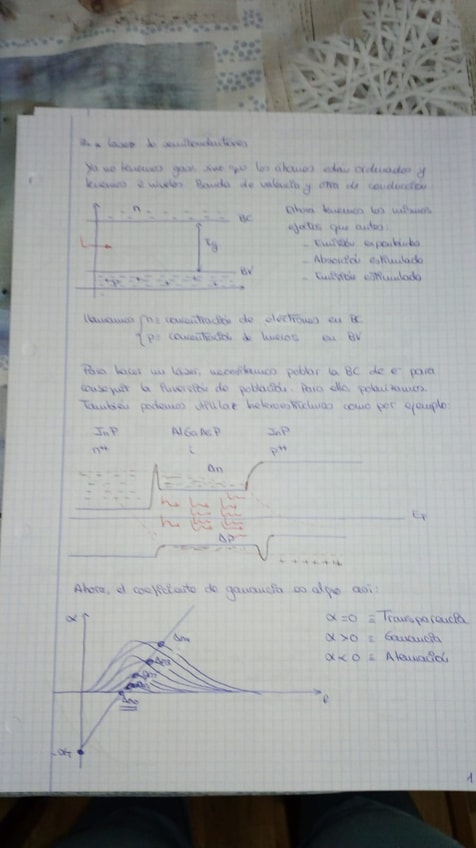 Láser de semiconductores
Ya no tenemos gas, sino que los átomos están ordenados y
tenemos 2 niveles Banda de valencia y otra de conducción
n
BC
Eg
BV
Ahora tenemos los mismos
efectos que antes:
- Emisión espontánea
- Absorción estimulada
- Emisión estimulada
Llamamos { n = concentración de electrones en BC
p = concentración de huecos en BV
Para hacer un láser, necesitamos poblar la BC de e- para
conseguir la inversión de población. Para ello, polarizamos.
También podemos utilizar heteroestructuras como por ejemplo:
InP InP
n++ i p++
Δn
EF
Δp
Ahora, el coeficiente de ganancia es algo así:
α
α=0 ≡ Transparencia
α>0 ≡ Ganancia
α<0 ≡ Atenuación
1